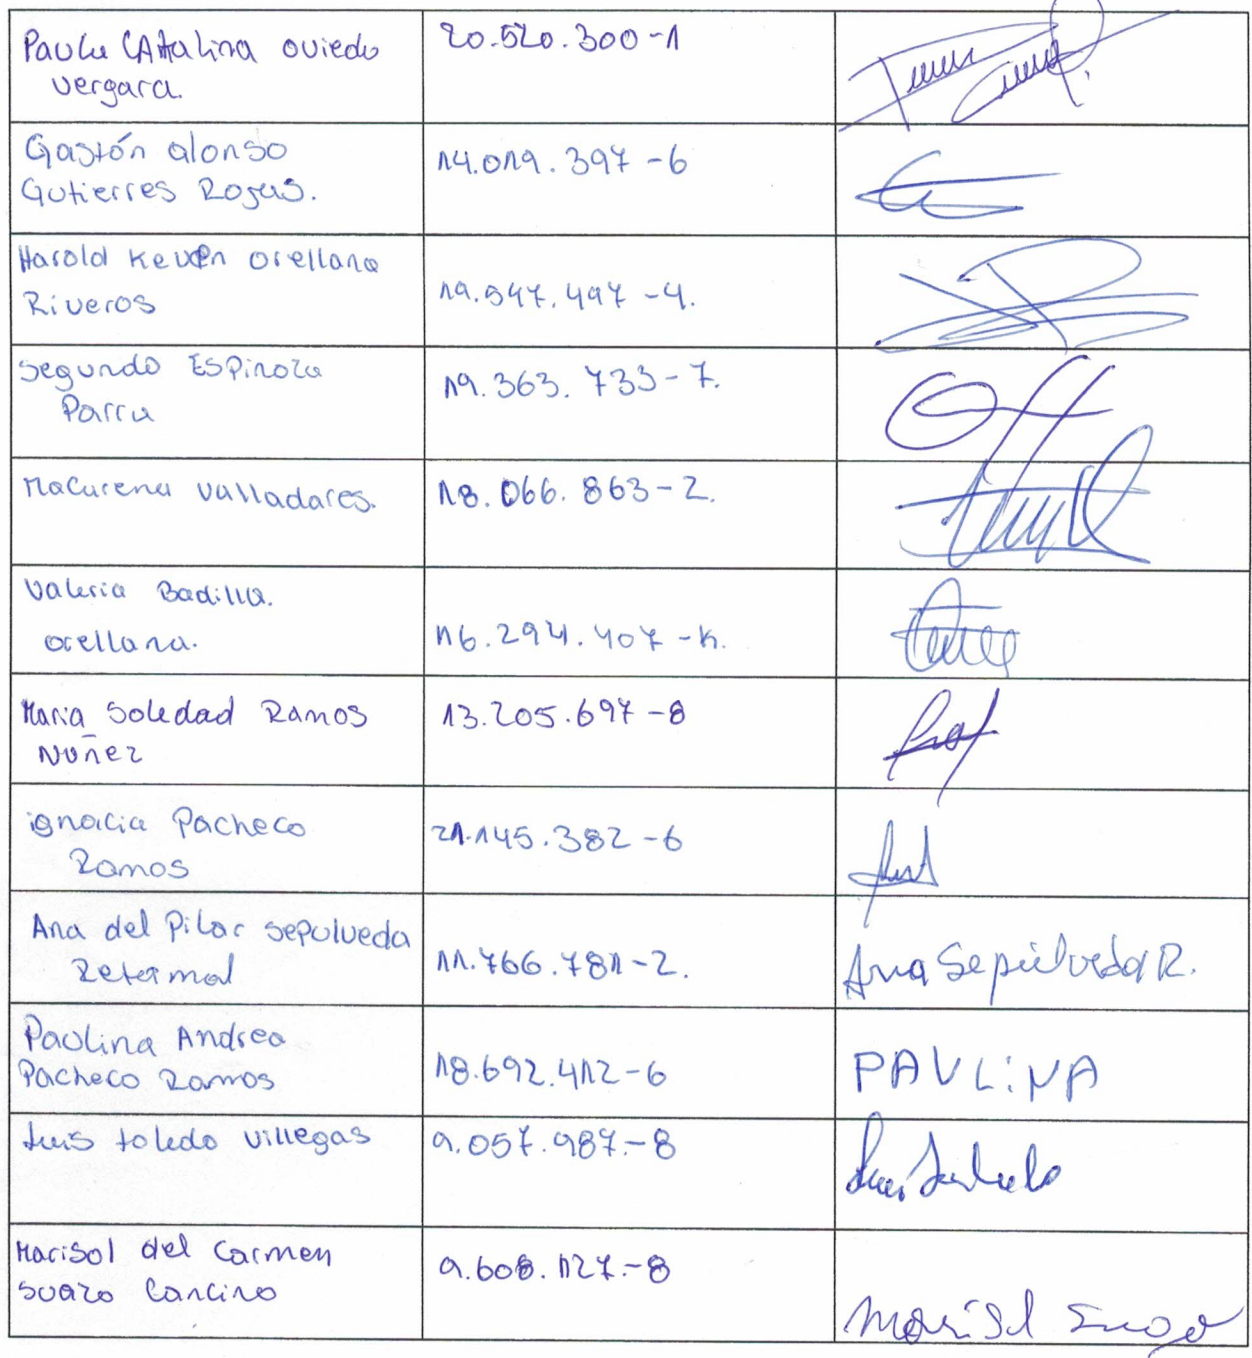 Paula CAtalina oviedo
vergara.
20.520.300-1
Gastón alonso
Gutierres Rojas.
14.019.397-6
Harold Keven orellana
Riveros
19.547.497-4.
Segundo ESPinoza
Parra
19.363.733-7.
Macarena valladares.
18.066.863-2.
Valeria Badilla.
orellana.
16.294.407-K.
Maria Soledad Ramos
Nuñez
13.205.697-8
ignacia Pacheco
Ramos
21.145.382-6
Ana del Pilar sepulveda
Retamal
11.766.781-2.
Ana Sepúlveda R.
Paulina Andrea
Pacheco Ramos
18.692.412-6
PAULiNA
Luis toledo villegas
9.057.987.-8
Marisol del Carmen
suazo Cancino
9.608.127.-8
Marisol Suazo